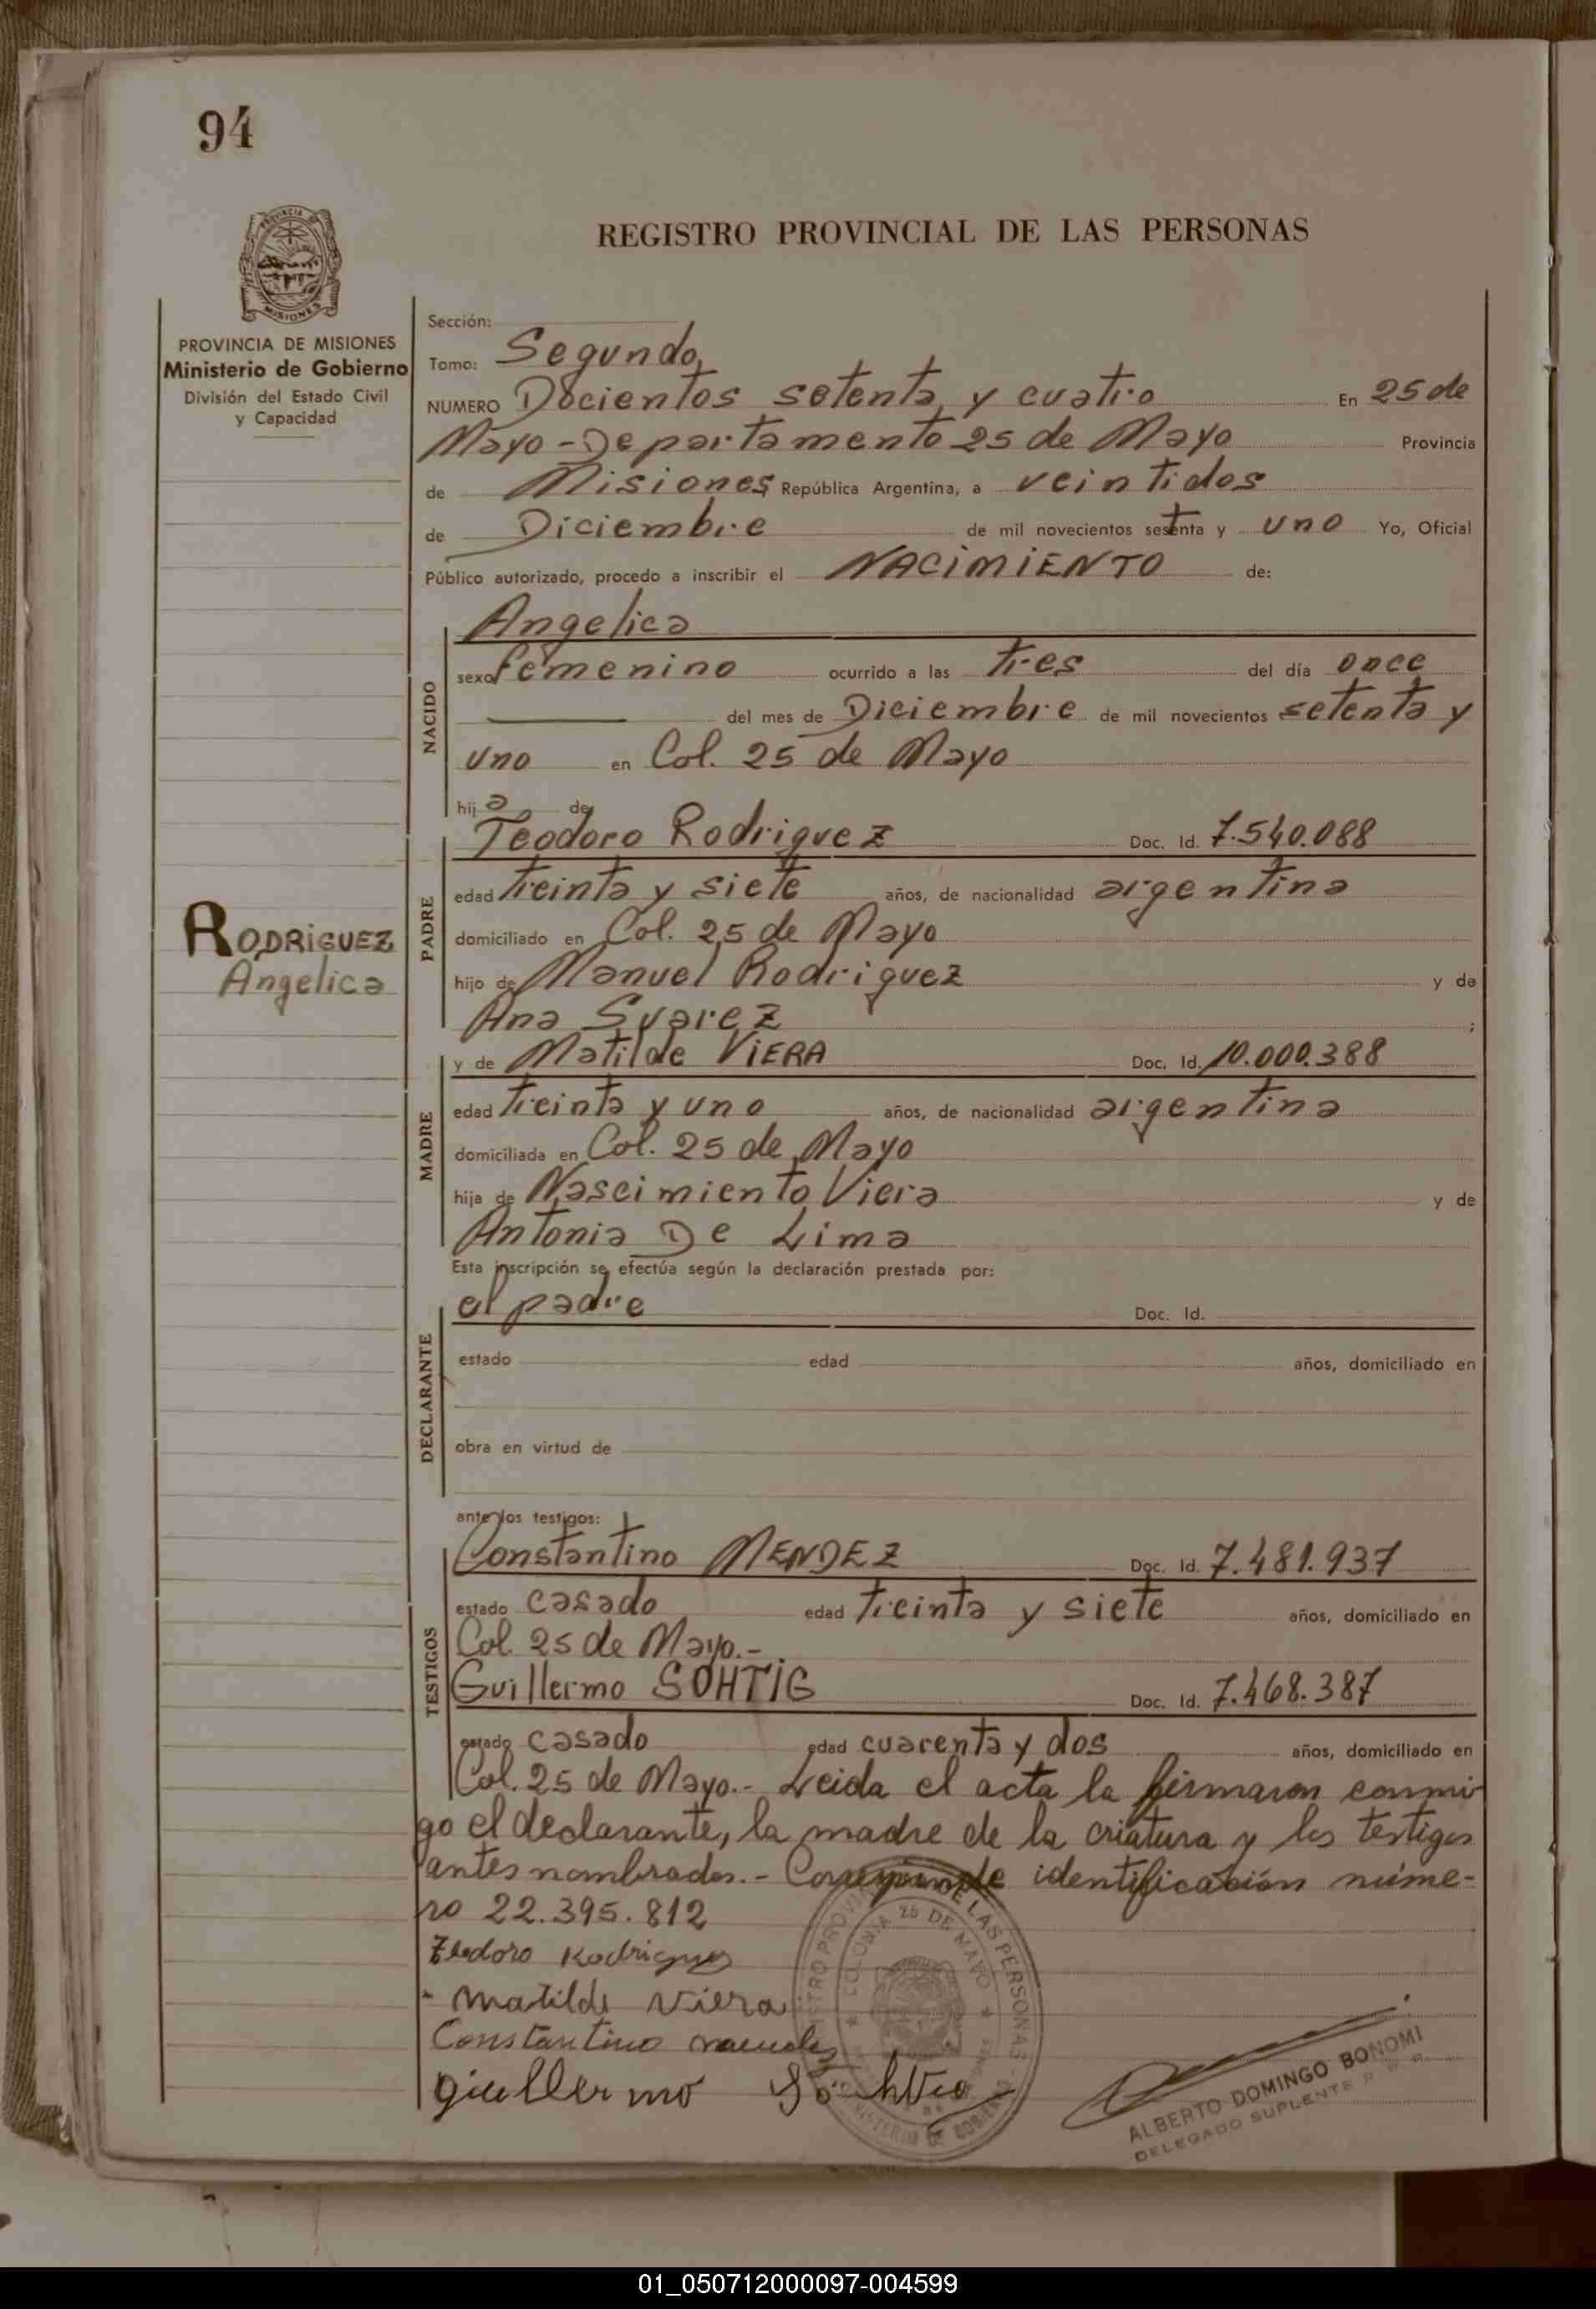 94
REGISTRO PROVINCIAL DE LAS PERSONAS
PROVINCIA DE MISIONES
Ministerio de Gobierno
División del Estado Civil
y Capacidad
Sección:
Tomo: Segundo
NUMERO Docientos setenta y cuatro En 25 de
Mayo - Departamento 25 de Mayo Provincia
de Misiones República Argentina, a veintidos
de Diciembre de mil novecientos setenta y uno Yo, Oficial
Público autorizado, procedo a inscribir el NACIMIENTO de:
NACIDO
Angelica
sexo femenino ocurrido a las tres del día once
del mes de Diciembre de mil novecientos setenta y
uno en Col. 25 de Mayo
hij a de
PADRE
Teodoro Rodriguez Doc. Id. 7.540.088
edad treinta y siete años, de nacionalidad argentina
RODRIGUEZ
Angelica
domiciliado en Col. 25 de Mayo
hijo de Manuel Rodriguez y de
Ana Suarez ;
MADRE
y de Matilde VIERA Doc. Id. 10.000.388
edad treinta y uno años, de nacionalidad argentina
domiciliada en Col. 25 de Mayo
hija de Nascimiento Viera y de
Antonia De Lima
Esta inscripción se efectúa según la declaración prestada por:
DECLARANTE
el padre Doc. Id.
estado edad años, domiciliado en
obra en virtud de
ante los testigos:
TESTIGOS
Constantino MENDEZ Doc. Id. 7.481.937
estado casado edad treinta y siete años, domiciliado en
Col. 25 de Mayo.-
Guillermo SOHTIG Doc. Id. 7.468.387
estado casado edad cuarenta y dos años, domiciliado en
Col. 25 de Mayo.- Leida el acta la firmaron conmi
go el declarante, la madre de la criatura y los testigos
antes nombrados.- Corresponde identificación núme-
ro 22.395.812
Teodoro Rodriguez
Matilde Viera
Constantino mendez
guillermo
COLONIA 25 DE MAYO
ALBERTO DOMINGO BONOMI
DELEGADO SUPLENTE
01_050712000097-004599